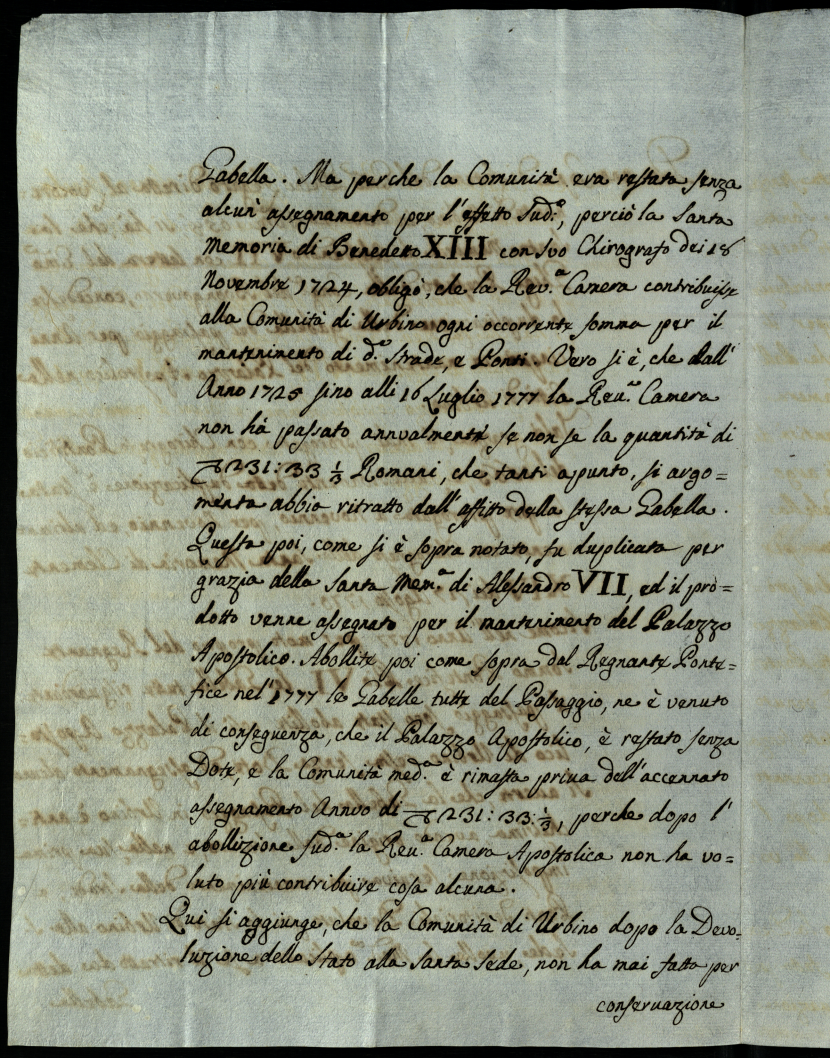 Gabella. Ma perche la Comunità era restata senza
alcun' assegnamento per l'effetto sud.º, perciò la Santa
Memoria di Benedetto XIII con suo Chirografo dei 18
Novembre 1724, obligò, che la Rev.ª Camera contribuisse
alla Comunità di Urbino ogni occorrente somma per il
mantenimento di d.º Strade, e Ponti. Vero si è, che dall'
Anno 1725 sino alli 16 Luglio 1777 la Reu.ª Camera
non hà passato annualmente se non se la quantità di
231:33 1/3 Romani, che tanti apunto, si argo=
menta abbia ritratto dall'affitto della stessa Gabella.
Questa poi, come si è sopra notato, fu duplicata per
grazia della Santa Mem.ª di Alessandro VII, ed il prò=
dotto venne assegnato per il mantenimento del Palazzo
Apostolico. Abollite poi come sopra dal Regnante Ponte=
fice nel' 1777 le Gabelle tutte del Passaggio, ne è venuto
di conseguenza, che il Palazzo Apostolico, è restato senza
Dote, e la Comunità med.ª è rimasta priva dell'accennato
assegnamento Annuo di 231:33:1/3, perche dopo l'
abollizione sud.ª la Reu.ª Camera Apostolica non ha vo=
luto più contribuire cosa alcuna.
Qui si aggiunge, che la Comunità di Urbino dopo la Devo=
luzione dello Stato alla Santa Sede, non ha mai fatto per
conservazione